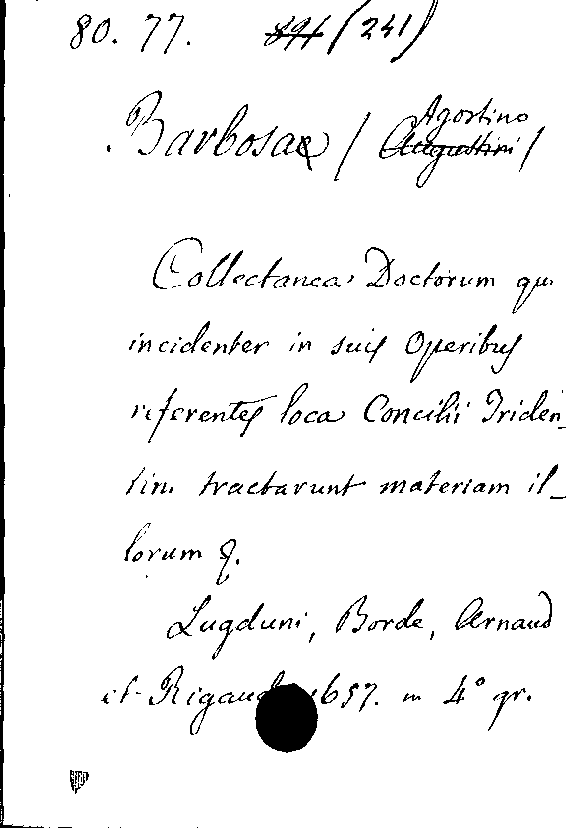 80. 77. (241)
Agostino
Barbosae / Augustini /
Collectanea Doctorum qui
incidenter in suis Operibus
referentes loca Concilii Triden_
tini tractarunt materiam il_
lorum &.
Lugduni, Borde, Arnaud
et Rigaud 1657. in 4° gr.